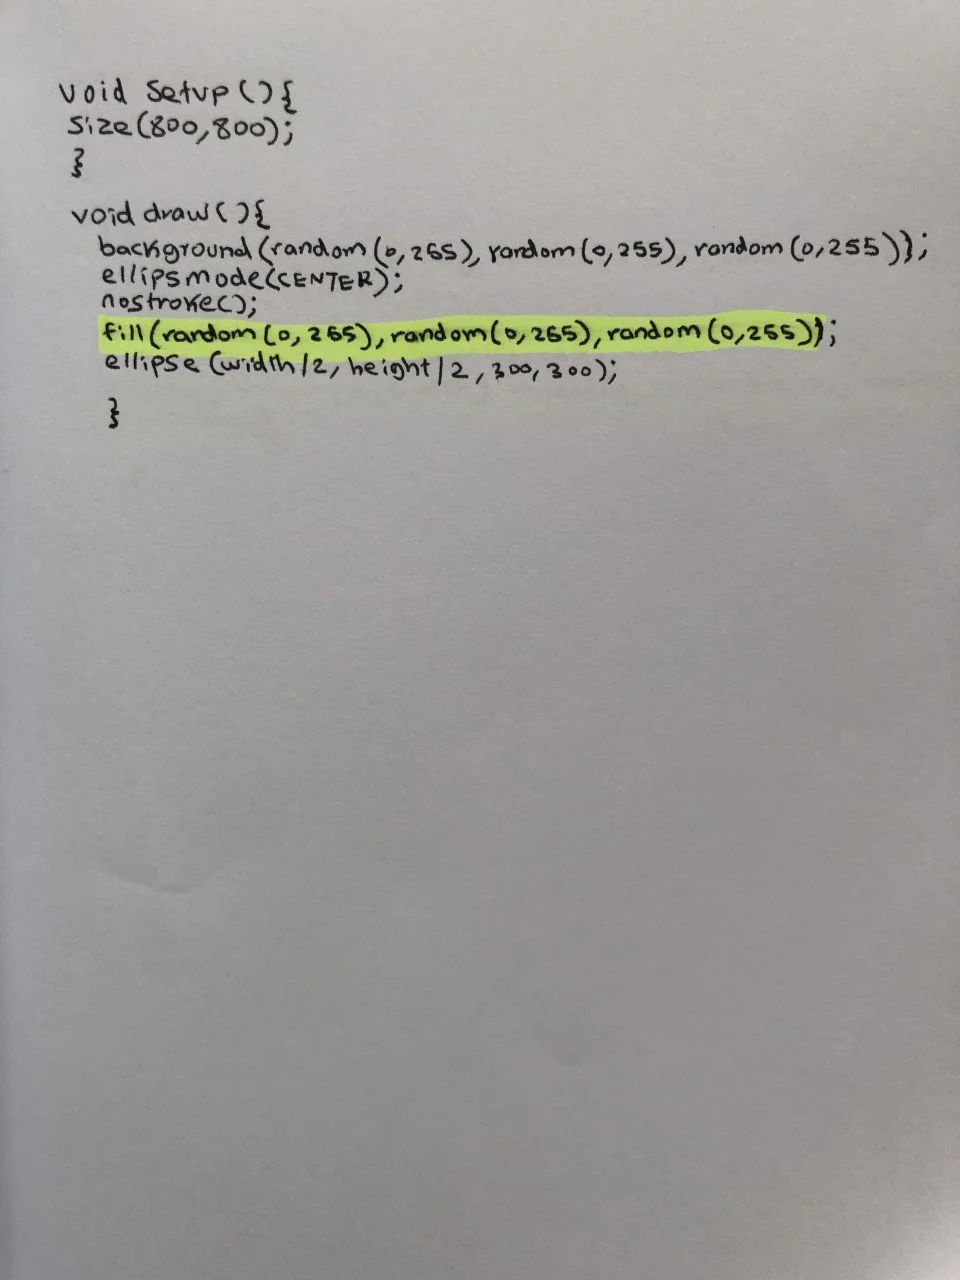 void setup(){
size(800,800);
}
void draw(){
background(random(0,255),random(0,255),random(0,255));
ellipsmode(CENTER);
nostroke();
fill(random(0,255),random(0,255),random(0,255));
ellipse(width/2,height/2,300,300);
}